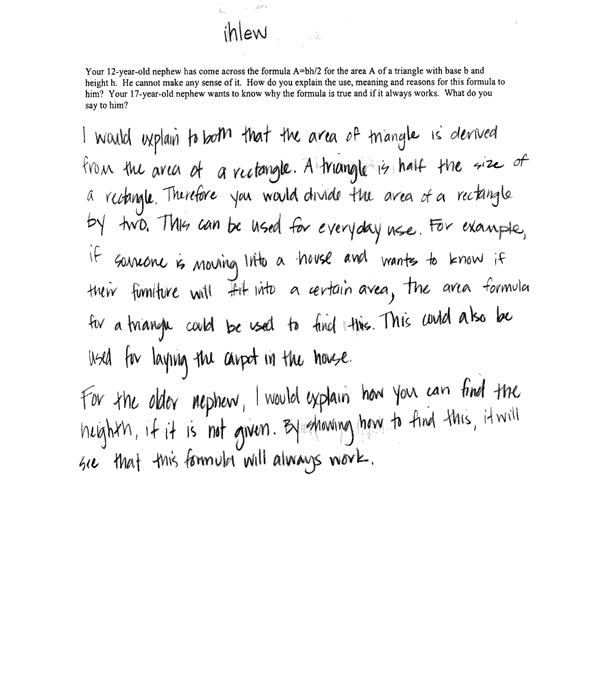 ihlew
Your 12-year-old nephew has come across the formula A=bh/2 for the area A of a triangle with base b and
height h. He cannot make any sense of it. How do you explain the use, meaning and reasons for this formula to
him? Your 17-year-old nephew wants to know why the formula is true and if it always works. What do you
say to him?
I would explain to both that the area of triangle is derived
from the area of a rectangle. A triangle is half the size of
a rectangle. Therefore you would divide the area of a rectangle
by two. This can be used for everyday use. For example,
if someone is moving into a house and wants to know if
their furniture will fit into a certain area, the area formula
for a triangle could be used to find this. This could also be
used for laying the carpot in the house.
For the older nephew, I would explain how you can find the
heighth, if it is not given. By showing how to find this, it will
see that this formula will always work.